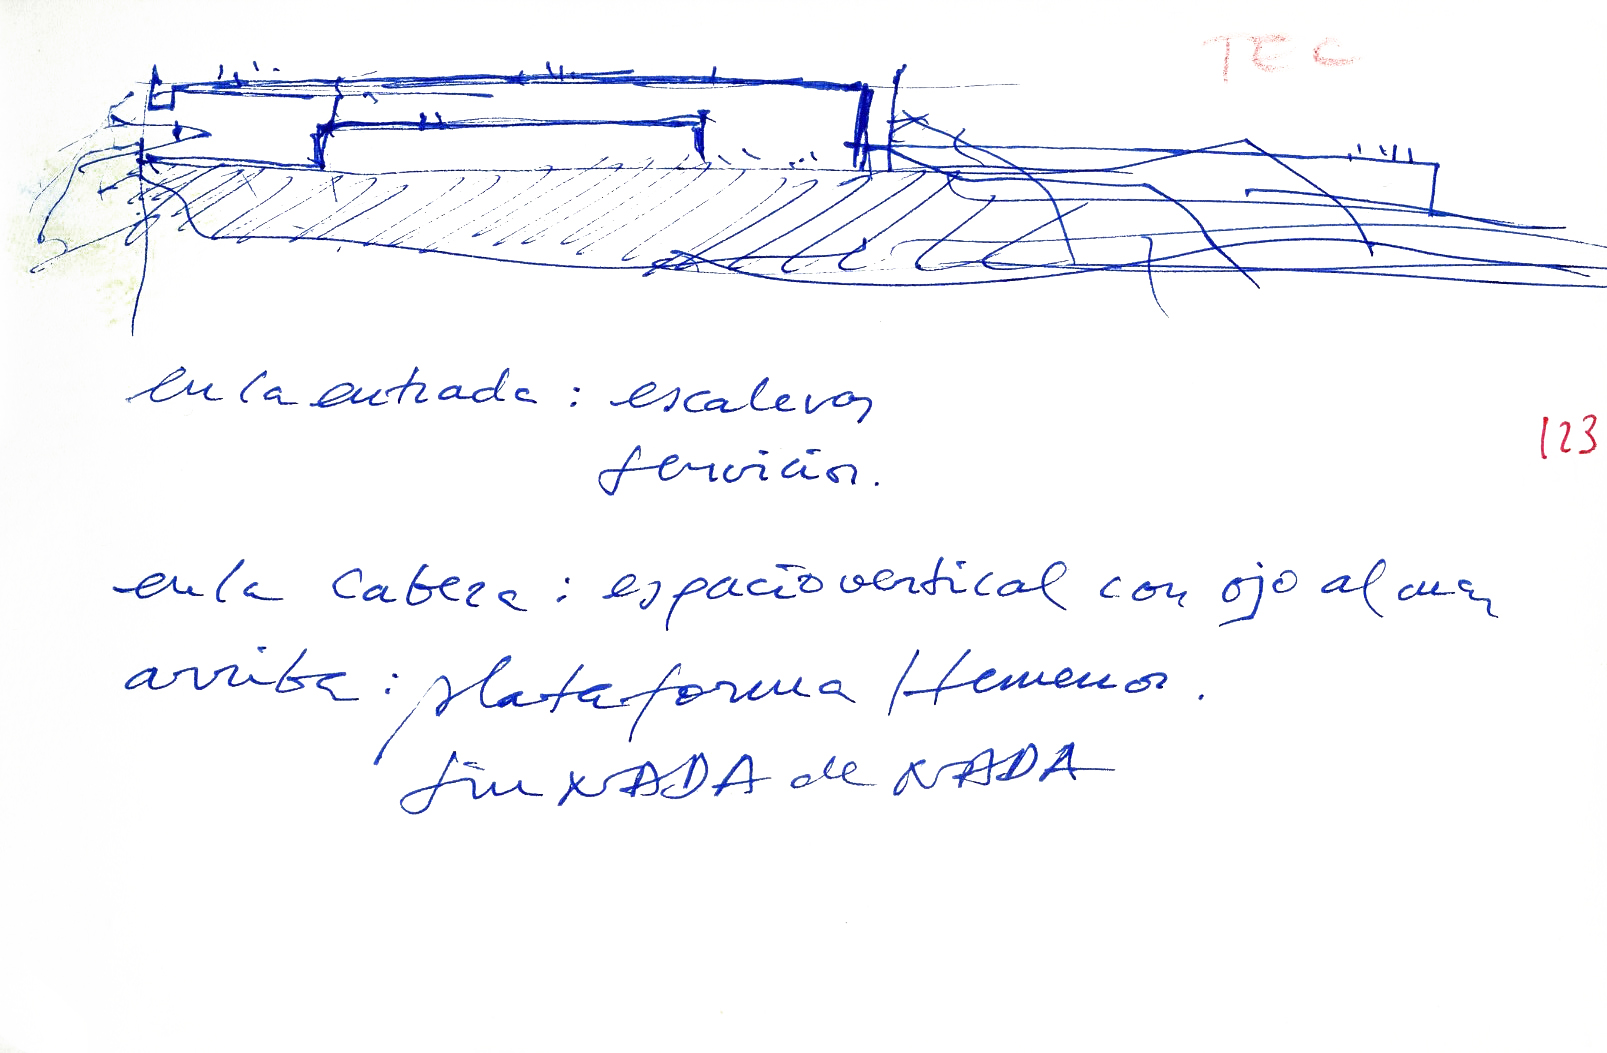 TEC
en la entrada : escaleras
servicios.
123
en la cabeza : espacio vertical con ojo al mar
arriba : plataforma / temenos.
sin NADA de NADA